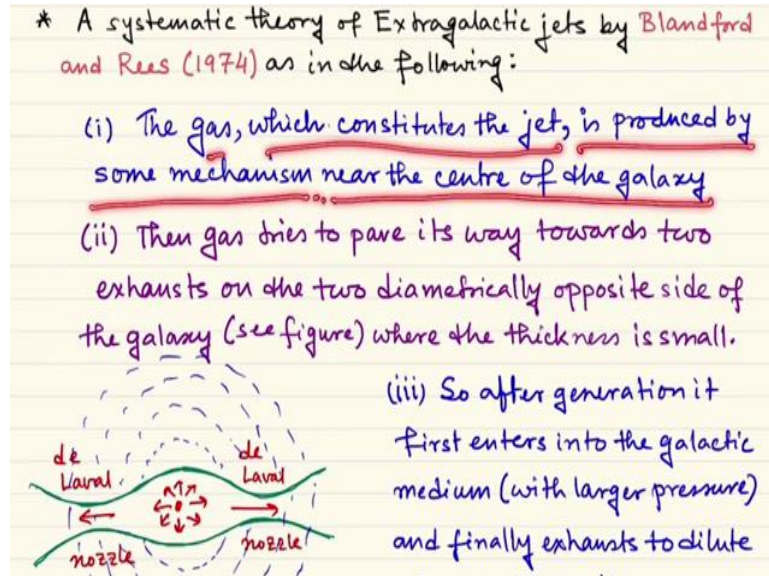 * A systematic theory of Extragalactic jets by Blandford
and Rees (1974) as in the following:
(i) The gas, which constitutes the jet, is produced by
some mechanism near the centre of the galaxy
(ii) Then gas tries to pave its way towards two
exhausts on the two diametrically opposite side of
the galaxy (see figure) where the thickness is small.
(iii) So after generation it
first enters into the galactic
medium (with larger pressure)
and finally exhausts to dilute
de Laval
nozzle
de Laval
nozzle